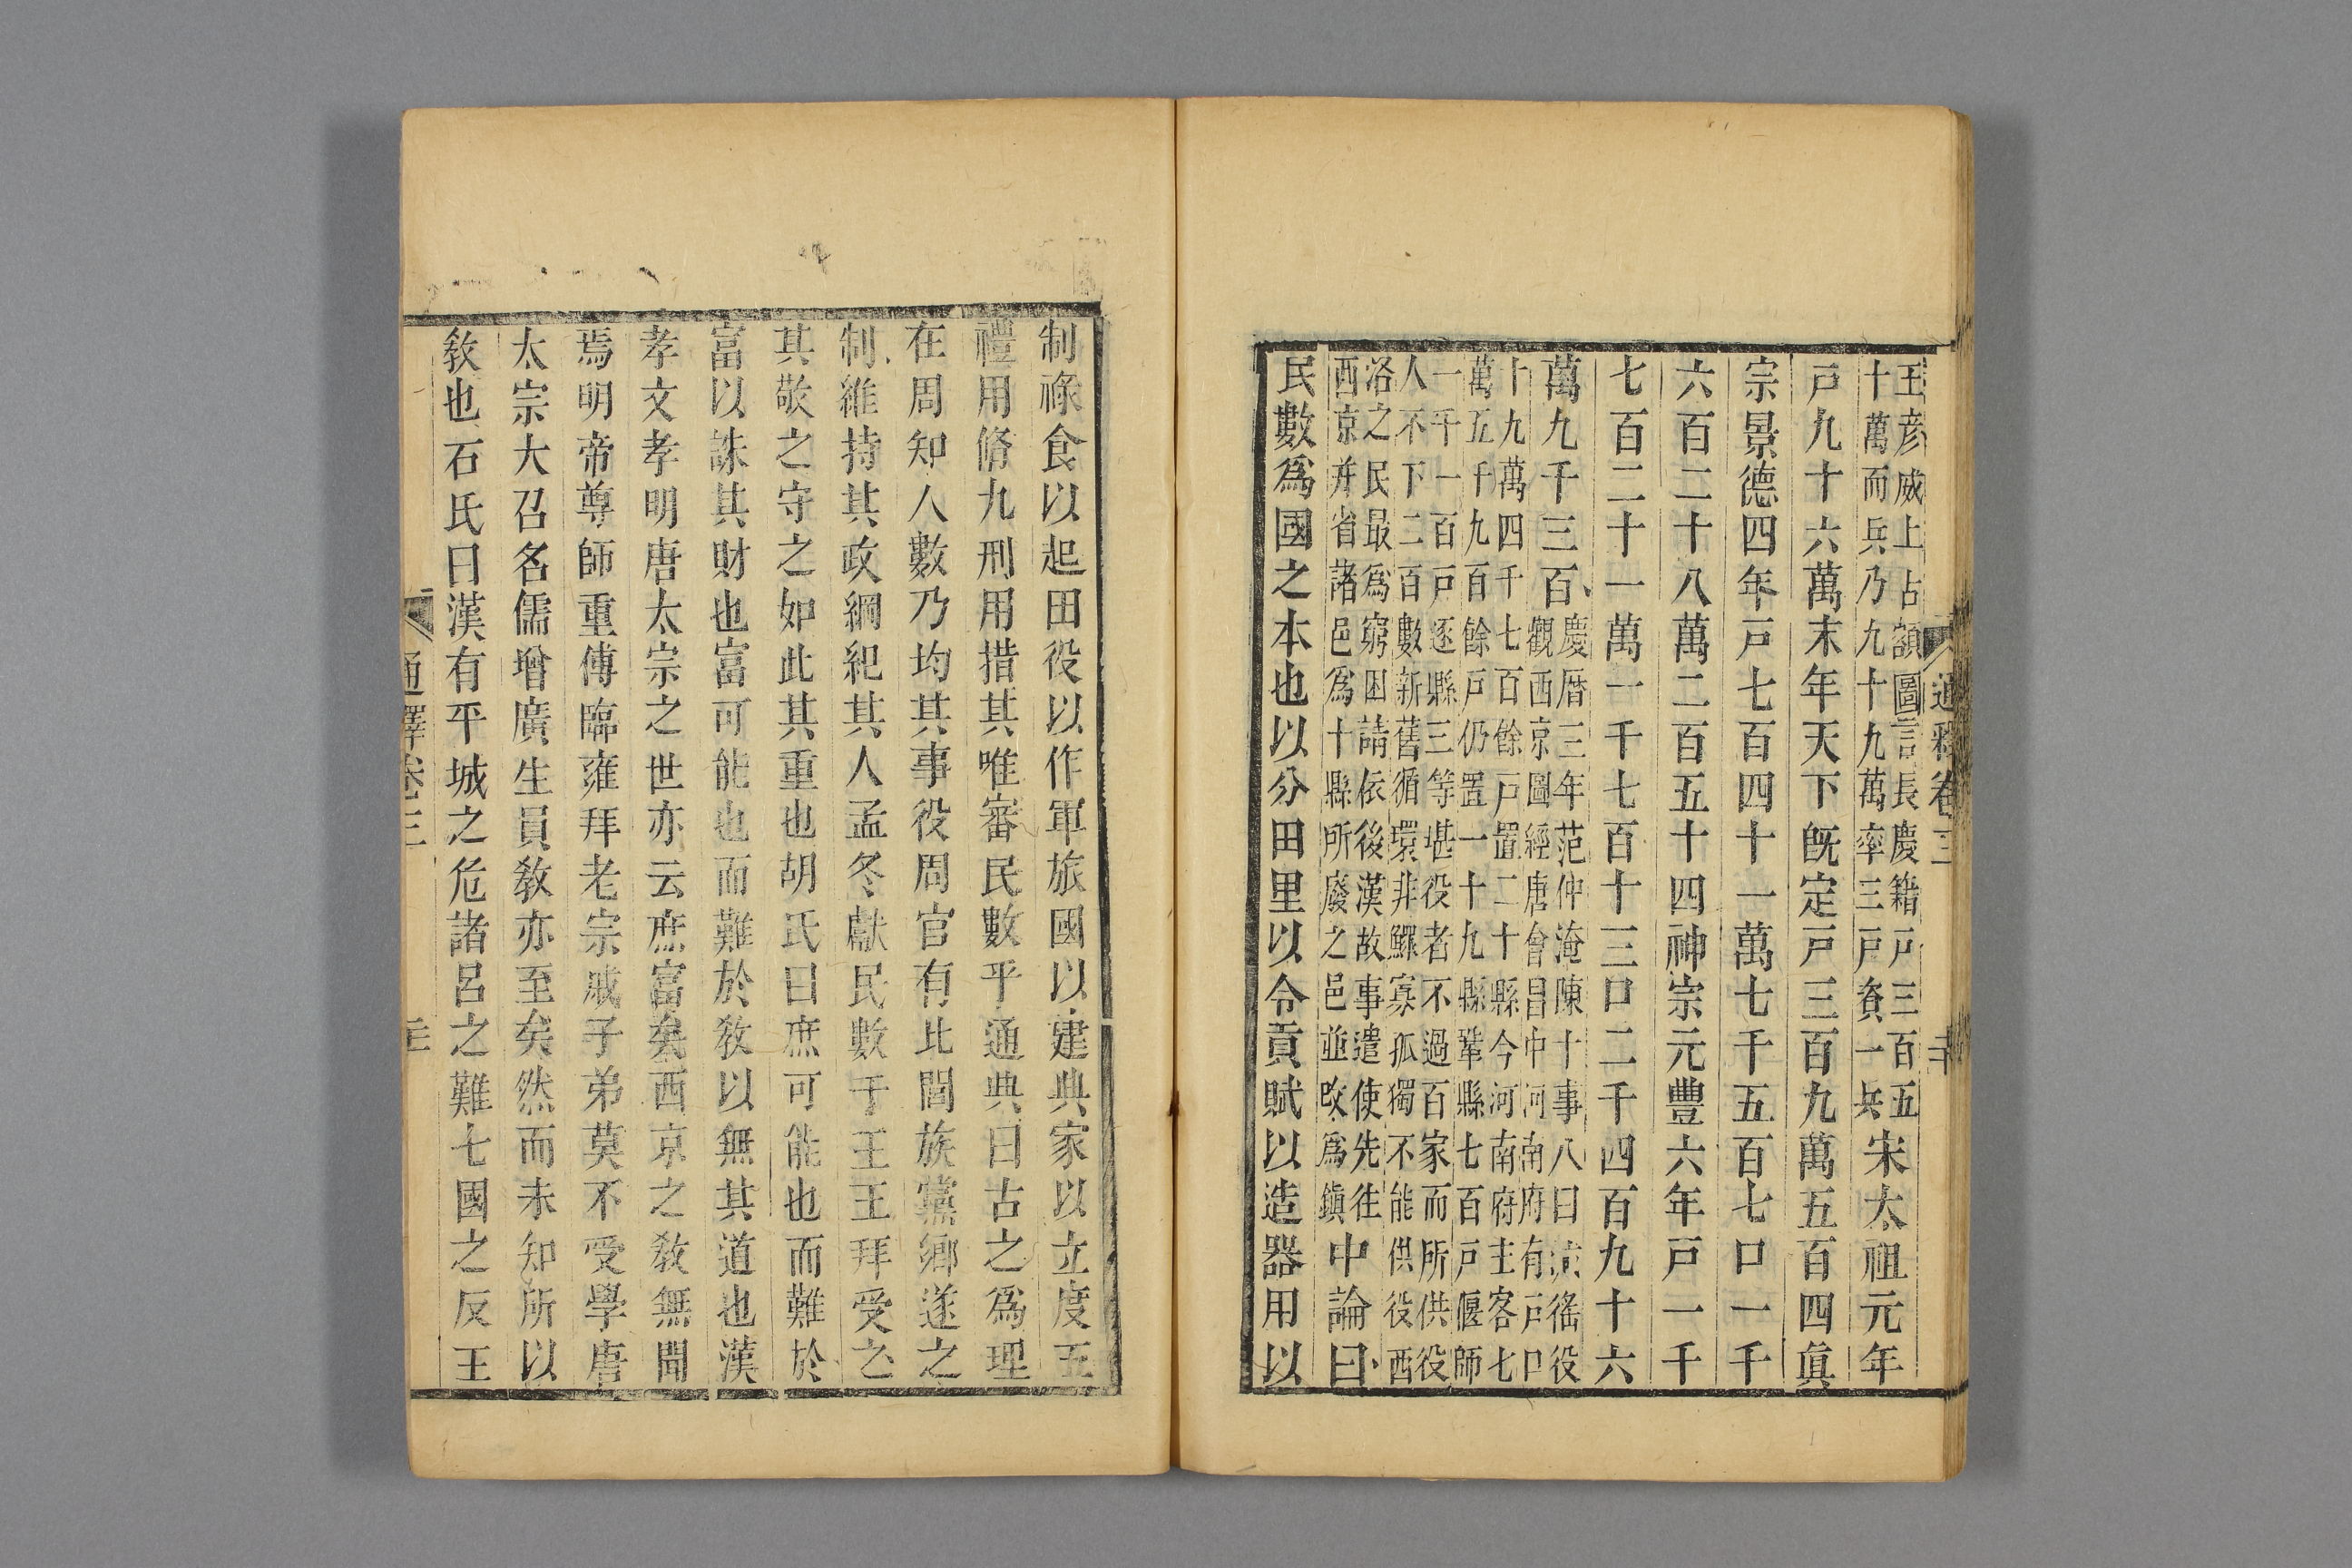 王彦威上占額圖言長慶籍戸三百五
十萬而兵乃九十九萬率三戸資一兵
宋太祖元年
戸九十六萬末年天下旣定戸三百九萬五百四眞
宗景德四年戸七百四十一萬七千五百七口一千
六百二十八萬二百五十四神宗元豐六年戸一千
七百二十一萬一千七百十三口二千四百九十六
萬九千三百
慶厤三年范仲淹陳十事八曰徭役
觀西京圖經唐會昌中河南府有戸口
十九萬四千七百餘戸置二十縣今河南府主客七
萬五千九百餘戸仍置一十九縣鞏縣七百戸偃師
一千一百戸逐縣三等堪役者不過百家而所供役
人不下二百數新舊循環非鰥寡孤獨不能供役西
洛之民最爲窮困請依後漢故事遣使先往
西京并省諸邑爲十縣所廢之邑並攺爲鎭
中論曰
民數爲國之本也以分田里以令貢賦以造器用以
通釋卷三
二十
制祿食以起田役以作軍旅國以建典家以立度五
禮用脩九刑用措其唯審民數乎通典曰古之爲理
在周知人數乃均其事役周官有比閭族黨鄉遂之
制維持其政綱紀其人孟冬獻民數于王王拜受之
其敬之守之如此其重也胡氏曰庶可能也而難於
富以誅其財也富可能也而難於敎以無其道也漢
孝文孝明唐太宗之世亦云庶富矣西京之敎無聞
焉明帝尊師重傅臨雍拜老宗戚子弟莫不受學唐
太宗大召名儒增廣生員敎亦至矣然而未知所以
敎也石氏曰漢有平城之危諸呂之難七國之反王
通釋卷三